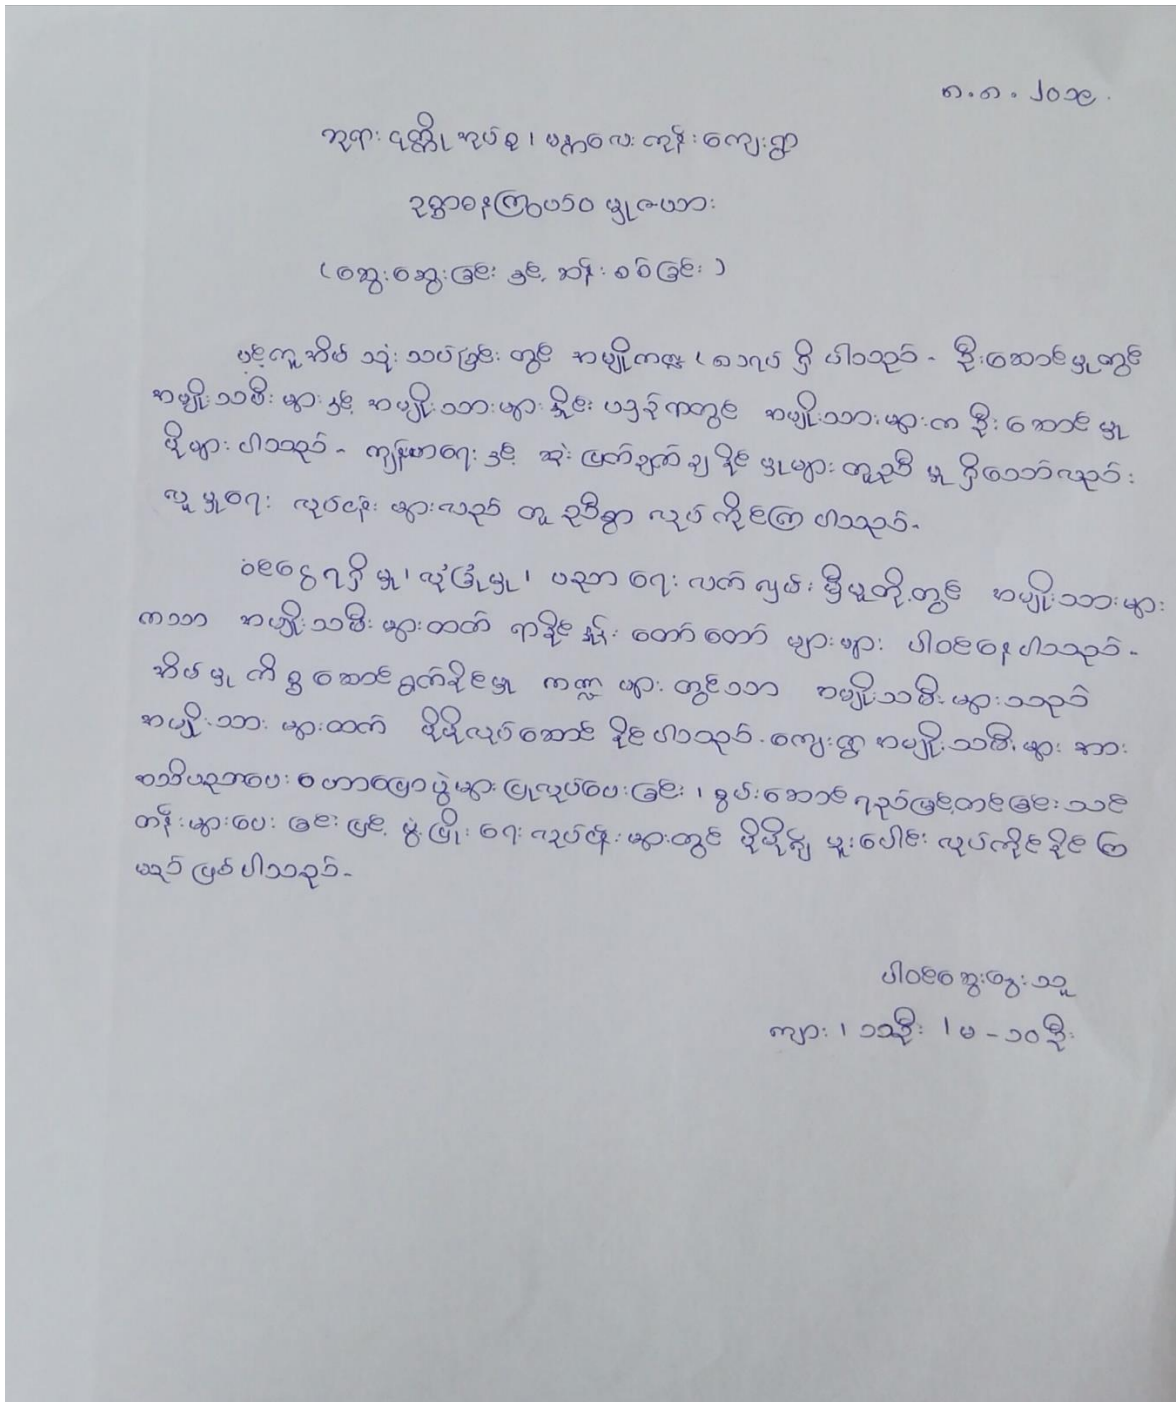 ၈.၈.၂၀၁၉.
ဘုရားငုတ္တိုအုပ်စု၊ မန္တလေးကုန်းကျေးရွာ
ဥစ္စာဓနကြွယ်ဝမှုဇယား
(ဆွေးနွေးခြင်းနှင့် ဆန်းစစ်ခြင်း)
ပင့်ကူအိမ်သုံးသပ်ခြင်းတွင် အမျိုကဏ္ဍ (၈)ရပ် ရှိပါသည်- ဦးဆောင်မှုတွင်
အမျိုးသမီးများနှင့် အမျိုးသားများနှိုင်းယှဉ်ရာတွင် အမျိုးသားများက ဦးဆောင်မှု
ပိုများပါသည်- ကျန်းမာရေးနှင့် ဆုံးဖြတ်ချက်ချနိုင်မှုများတူညီမှုရှိသော်လည်း
လူမှုရေးလုပ်ငန်းများလည်း တူညီစွာ လုပ်ကိုင်ကြပါသည်-
ဝင်ငွေရရှိမှု၊ လုံခြုံမှု၊ ပညာရေး လက်လှမ်းမှီမှုတို့တွင် အမျိုးသားများ
ကသာ အမျိုးသမီးများထက် ရာခိုင်နှုန်း တော်တော်များများ ပါဝင်နေပါသည်-
အိမ်မှုကိစ္စဆောင်ရွက်နိုင်မှု ကဏ္ဍများတွင်သာ အမျိုးသမီးများသည်
အမျိုးသားများထက် ပိုမိုလုပ်ဆောင်နိုင်ပါသည်. ကျေးရွာအမျိုးသမီးများအား
အသိပညာပေး ဟောပြောပွဲများပြုလုပ်ပေးခြင်း၊ စွမ်းဆောင်ရည်မြှင့်တင်ခြင်းသင်
တန်းများပေးခြင်းဖြင့် ဖွံ့ဖြိုးရေးလုပ်ငန်းများတွင် ပိုမို၍ ပူးပေါင်းလုပ်ကိုင်နိုင်ကြ
မည်ဖြစ်ပါသည်-
ပါဝင်ဆွေးနွေးသူ
ကျား၊ ၁၁ဦး၊ မ-၁၀ဦး